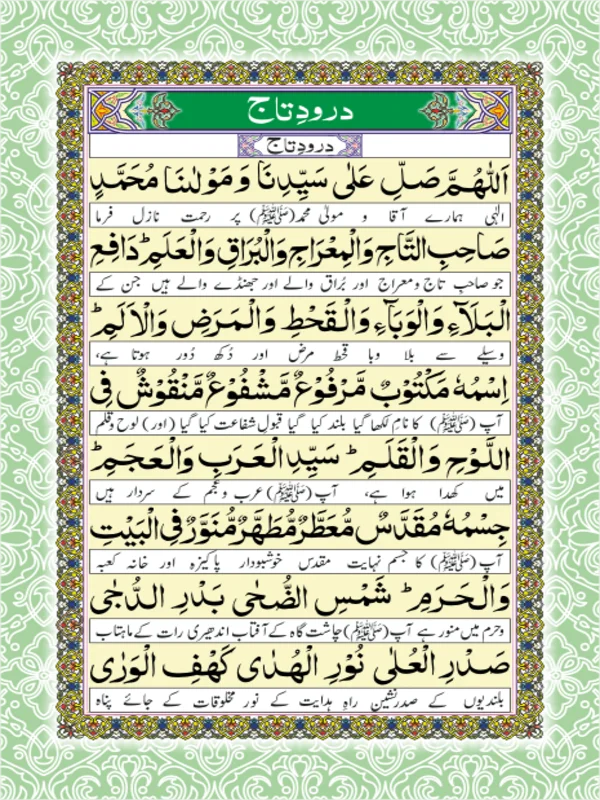 درودِتاج
درودِتاج
اَللّٰهُمَّ صَلِّ عَلٰى سَيِّدِنَا وَ مَوْلٰىنَا مُحَمَّدٍ
الٰہی ہمارے آقا و مولیٰ محمد(ﷺ) پر رحمت نازل فرما
صَاحِبِ التَّاجِ وَالْمِعْرَاجِ وَالْبُرَاقِ وَالْعَلَمِؕ دَافِعِ
جو صاحب تاج و معراج اور بُراق والے اور جھنڈے والے ہیں جن کے
الْبَلَآءِ وَالْوَبَآءِ وَالْقَحْطِ وَالْمَرَضِ وَالْاَلَمِؕ
وسیلے سے بلا وبا قحط مرض اور دُکھ دُور ہوتا ہے،
اِسْمُهٗ مَكْتُوْبٌ مَّرْفُوْعٌ مَّشْفُوْعٌ مَّنْقُوْشٌ فِى
آپ (ﷺ) کا نامِ لکھا گیا بلند کیا گیا قبولِ شفاعت کیا گیا (اور) لوح و قلم
اللَّوْحِ وَالْقَلَمِؕ سَيِّدِ الْعَرَبِ وَالْعَجَمِؕ
میں کھدا ہوا ہے، آپ(ﷺ) عرب و عجم کے سردار ہیں
جِسْمُهٗ مُقَدَّسٌ مُّعَطَّرٌ مُّطَهَّرٌ مُّنَوَّرٌ فِى الْبَيْتِ
آپ (ﷺ) کا جسم نہایت مقدس خوشبودار پاکیزہ اور خانہ کعبہ
وَالْحَرَمِؕ شَمْسِ الضُّحٰى بَدْرِ الدُّجٰى
وحرم میں منور ہے آپ(ﷺ) چاشت گاہ کے آفتاب اندھیری رات کے ماہتاب
صَدْرِ الْعُلٰى نُوْرِ الْهُدٰى كَهْفِ الْوَرٰى
بلندیوں کے صدر نشین راہِ ہدایت کے نور مخلوقات کے جائے پناہ